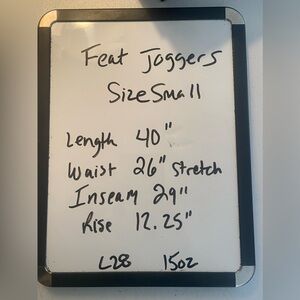 Feat Joggers
Size Small
Length 40"
Waist 26" stretch
Inseam 29"
Rise 12.25"
L28 15oz